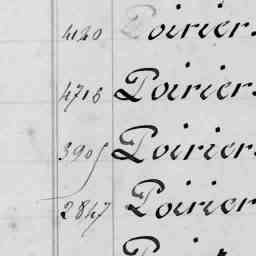 4120 Poirier
4716 Poirier
3905 Poirier
2847 Poirier